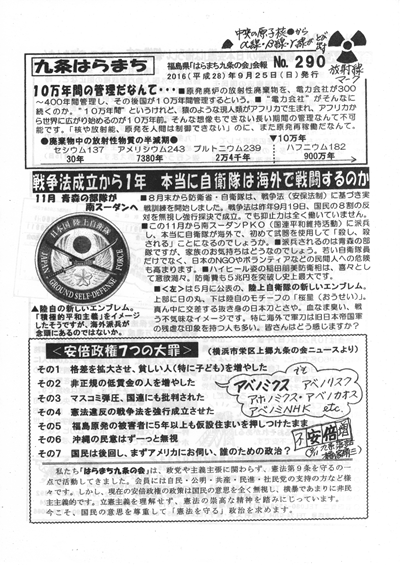 中央の原子核●から
α線・β線・γ線が
放射線
マーク
九条はらまち
福島県「はらまち九条の会」会報 No. 290
2016(平成28)年9月25日(日)発行
10万年間の管理だなんて・・・
■原発廃炉の放射性廃棄物を、電力会社が300
～400年間管理し、その後国が10万年管理するという。■"電力会社"がそんなに
続くのか、"10万年間"というけれど、猿のような現人類がアフリカで生まれ、アフリカか
ら世界に広がり始めるのが10万年前。そんな想像もできない長い期間の管理なんて不可
能です。「核や放射能、原発を人間は制御できない」のに、また原発再稼働だなんて。
●廃棄物中の放射性物質の半減期●
▼10万年
セシウム137 アメリシウム243 プルトニウム239 ハフニウム182
30年 7380年 2万4千年 900万年
戦争法成立から1年 本当に自衛隊は海外で戦闘するのか
11月 青森の部隊が
南スーダンへ
日本国 陸上自衛隊
JAPAN GROUND SELF-DEFENSE FORCE
▲陸自の新しいエンブレム。
「積極的平和主義」をイメージ
したそうですが、海外派兵が
念頭にあるのではないか。
■8月末から防衛省・自衛隊は、戦争法(安保法制)に基づき実
戦訓練を開始しました。戦争法は昨年9月19日、国民の8割の反
対を無視し強行採決で成立。でも抑止力は全く働いていません。
●この11月から南スーダンPKO(国連平和維持活動)に派兵
し、本当に自衛隊が海外で、初めて武器を使用して「殺し、殺
される」ことになるのでしょうか。■派兵されるのは青森の部
隊ですが、家族のお気持ちはどうなのでしょう。若い自衛隊員
だけでなく、日本のNGOやボランティアなどの民間人への危険
も高まります。■ハイヒール姿の稲田朋美防衛相は、喜々とし
て意欲満々。防衛費も5兆円を突破し史上最大です。
■<左>は5月に公表の、陸上自衛隊の新しいエンブレム。
上部に日の丸、下は陸自のモチーフの「桜星(おうせい)」。
真ん中に交差する抜き身の日本刀とさや。血なま臭い、戦
う不気味なイメージです。特に海外で軍刀は旧日本帝国軍
の残虐な印象を持つ人も多い。皆さんはどう感じますか?
<安倍政権7つの大罪>
(横浜市栄区上郷九条の会ニュースより)
その1 格差を拡大させ、貧しい人(特に子ども)を増やした
その2 非正規の低賃金の人を増やした
その3 マスコミ弾圧、国連にも批判された
その4 憲法違反の戦争法を強行成立させた
その5 福島原発の被害者に5年以上も仮設住まいを押しつけたまま
その6 沖縄の民意はずーっと無視
その7 国民は後回し、まずアメリカにお伺い、誰のための政治?
アベノミクス
アベノリスク
アホノミクス・アベノカオス
アベノミNHK etc.
安倍
私たち「はらまち九条の会」は、政党や主義主張に関わらず、憲法第9条を守るの一
点で活動してきました。会員には自民・公明・共産・民進・社民党の支持の方など様
々です。しかし、現在の安倍政権の政策は国民の意思を全く無視し、横暴であまりに非民
主主義的です。立憲主義を理解せず、憲法の崇高な精神を踏みにじっています。
今こそ、国民の意思を尊重して「憲法を守る」政治を求めます。